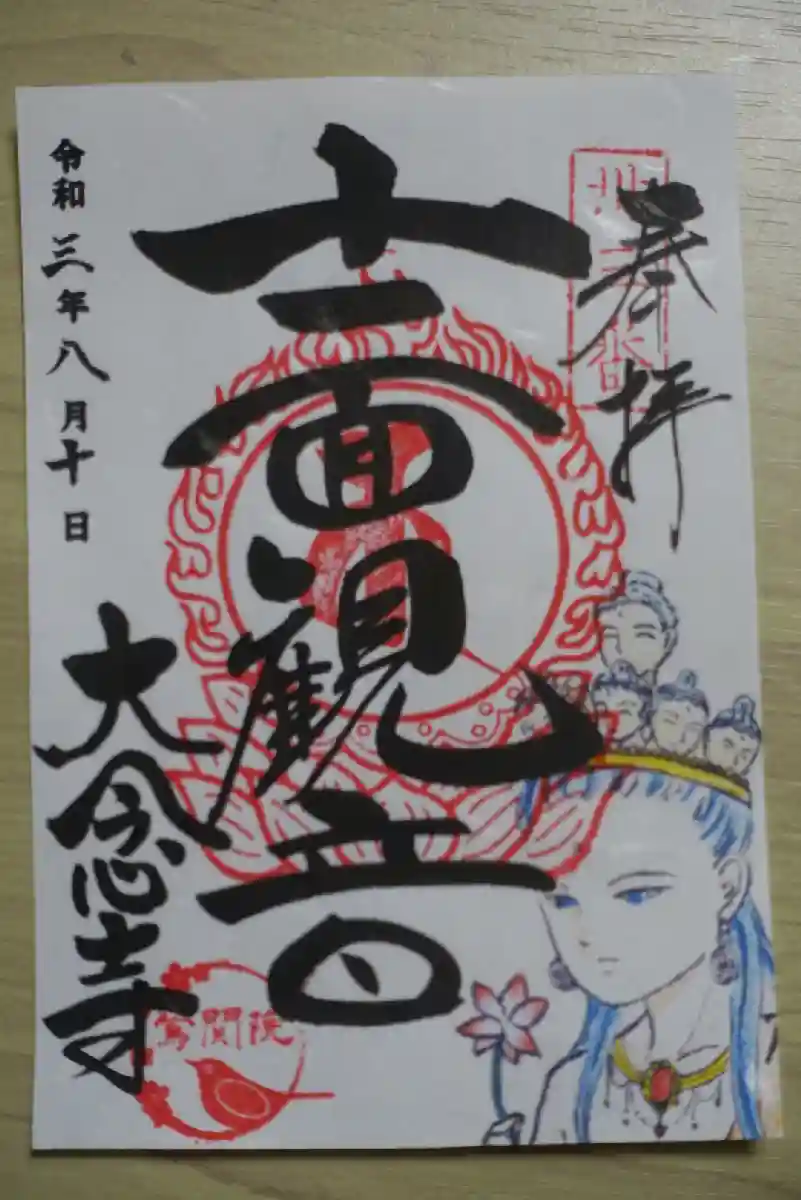 奉拝
十一面観音
令和三年八月十日
大念寺
鶯関院